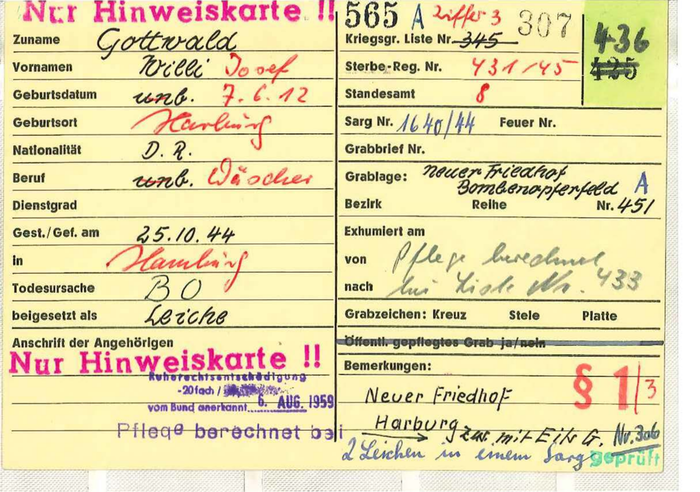 Nur Hinweiskarte !!
Zuname Gottwald
Vornamen Willi Josef
Geburtsdatum unb. 7.6.12
Geburtsort Harburg
Nationalität D. R.
Beruf unb. Wäscher
Dienstgrad
Gest./Gef. am 25.10.44
in Hamburg
Todesursache BO
beigesetzt als Leiche
Anschrift der Angehörigen
Nur Hinweiskarte !!
Ruherechtsentschädigung
-20fach /
vom Bund anerkannt 6. AUG. 1959
Pflege berechnet bei
565 A Ziffer 3 307
Kriegsgr. Liste Nr. 345
436
425
Sterbe-Reg. Nr. 431/45
Standesamt 8
Sarg Nr. 1640/44 Feuer Nr.
Grabbrief Nr.
Grablage: neuer Friedhof
Bombenopferfeld A
Bezirk Reihe Nr. 451
Exhumiert am
von Pflege berechnet
nach bei Liste Nr. 433
Grabzeichen: Kreuz Stele Platte
Öffentl. gepflegtes Grab ja/nein
Bemerkungen:
§ 1/3
Neuer Friedhof
Harburg zus. mit Eits G. Nr. 306
2 Leichen in einem Sarg
geprüft